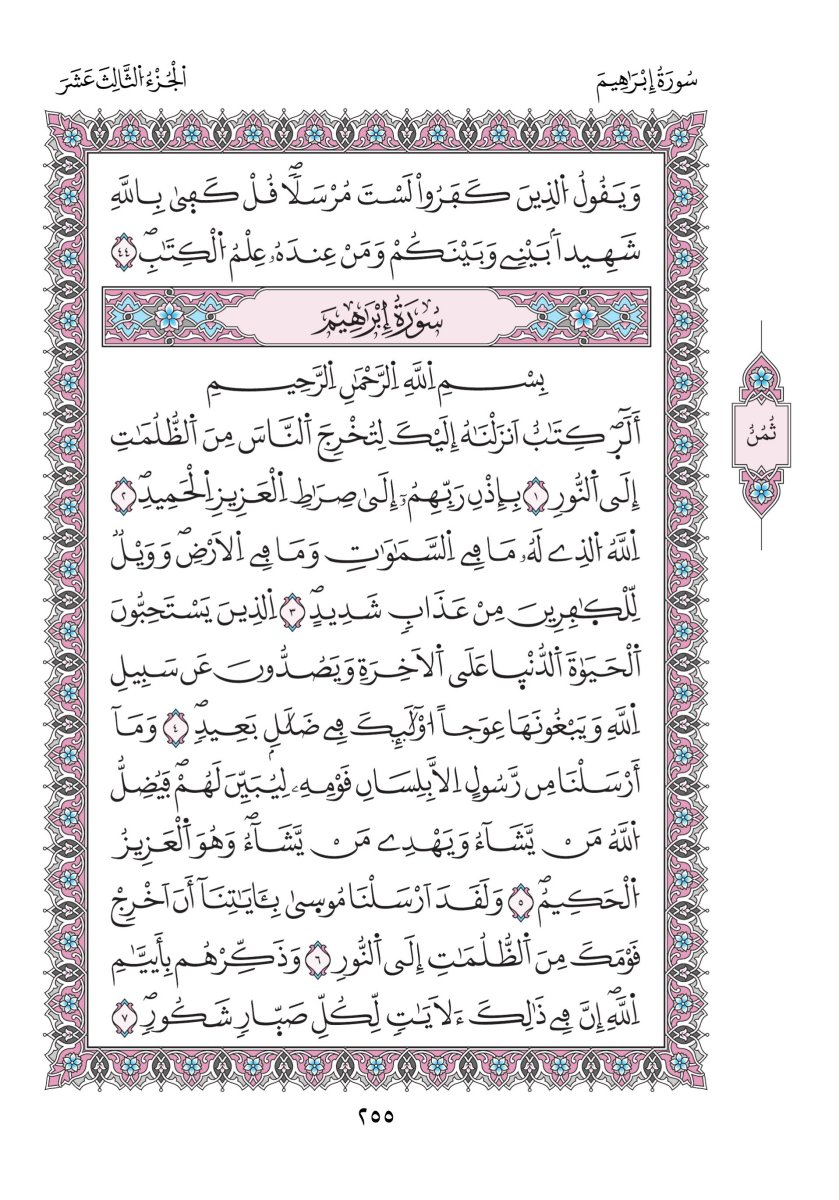 سُورَةُ إِبْرَاهِيمَ
اَلْجُزْءُ اَلثَّالِثَ عَشَرَ
وَيَقُولُ اُلذِينَ كَفَرُواْ لَسْتَ مُرْسَلاٗۖ قُلْ كَف۪ىٰ بِاللَّهِ
شَهِيداَۢ بَيْنِے وَبَيْنَكُمْ وَمَنْ عِندَهُۥ عِلْمُ اُلْكِتَٰبِۖ ٤٤
سُورَةُ إِبْرَاهِيمَ
بِسْمِ اِللَّهِ اِلرَّحْمَٰنِ اِلرَّحِيمِ
أَلَٓرۖ كِتَٰبٌ اَنزَلْنَٰهُ إِلَيْكَ لِتُخْرِجَ اَلنَّاسَ مِنَ اَلظُّلُمَٰتِ
إِلَى اَلنُّورِ ١ بِإِذْنِ رَبِّهِمُۥٓ إِلَىٰ صِرَٰطِ اِلْعَزِيزِ اِلْحَمِيدِۖ ٢
اِللَّهِ اِلذِے لَهُۥ مَا فِے اِلسَّمَٰوَٰتِ وَمَا فِے اِلَارْضِۖ وَوَيْلٌ
لِّلْكٰ۪فِرِينَ مِنْ عَذَابٖ شَدِيدٍۖ ٣ اِلذِينَ يَسْتَحِبُّونَ
اَلْحَيَوٰةَ اَلدُّنْي۪ا عَلَى اَلَاخِرَةِ وَيَصُدُّونَ عَن سَبِيلِ
اِللَّهِ وَيَبْغُونَهَا عِوَجاًۖ ا۟وْلَٰٓئِكَ فِے ضَلَٰلِۢ بَعِيدٖۖ ٤ وَمَآ
أَرْسَلْنَا مِن رَّسُولٍ اِلَّا بِلِسَانِ قَوْمِهِۦ لِيُبَيِّنَ لَهُمْۖ فَيُضِلُّ
اُللَّهُ مَنْ يَّشَآءُ وَيَهْدِے مَنْ يَّشَآءُۖ وَهُوَ اَلْعَزِيزُ
اُلْحَكِيمُۖ ٥ وَلَقَدَ اَرْسَلْنَا مُوس۪ىٰ بِـَٔايَٰتِنَآ أَنَ اَخْرِجْ
قَوْمَكَ مِنَ اَلظُّلُمَٰتِ إِلَى اَلنُّورِ ٦ وَذَكِّرْهُم بِأَيَّيٰمِ
اِللَّهِۖ إِنَّ فِے ذَٰلِكَ ءَلَايَٰتٖ لِّكُلِّ صَبّ۪ارٖ شَكُورٖۖ ٧
ثُمُنٌ
٢٥٥